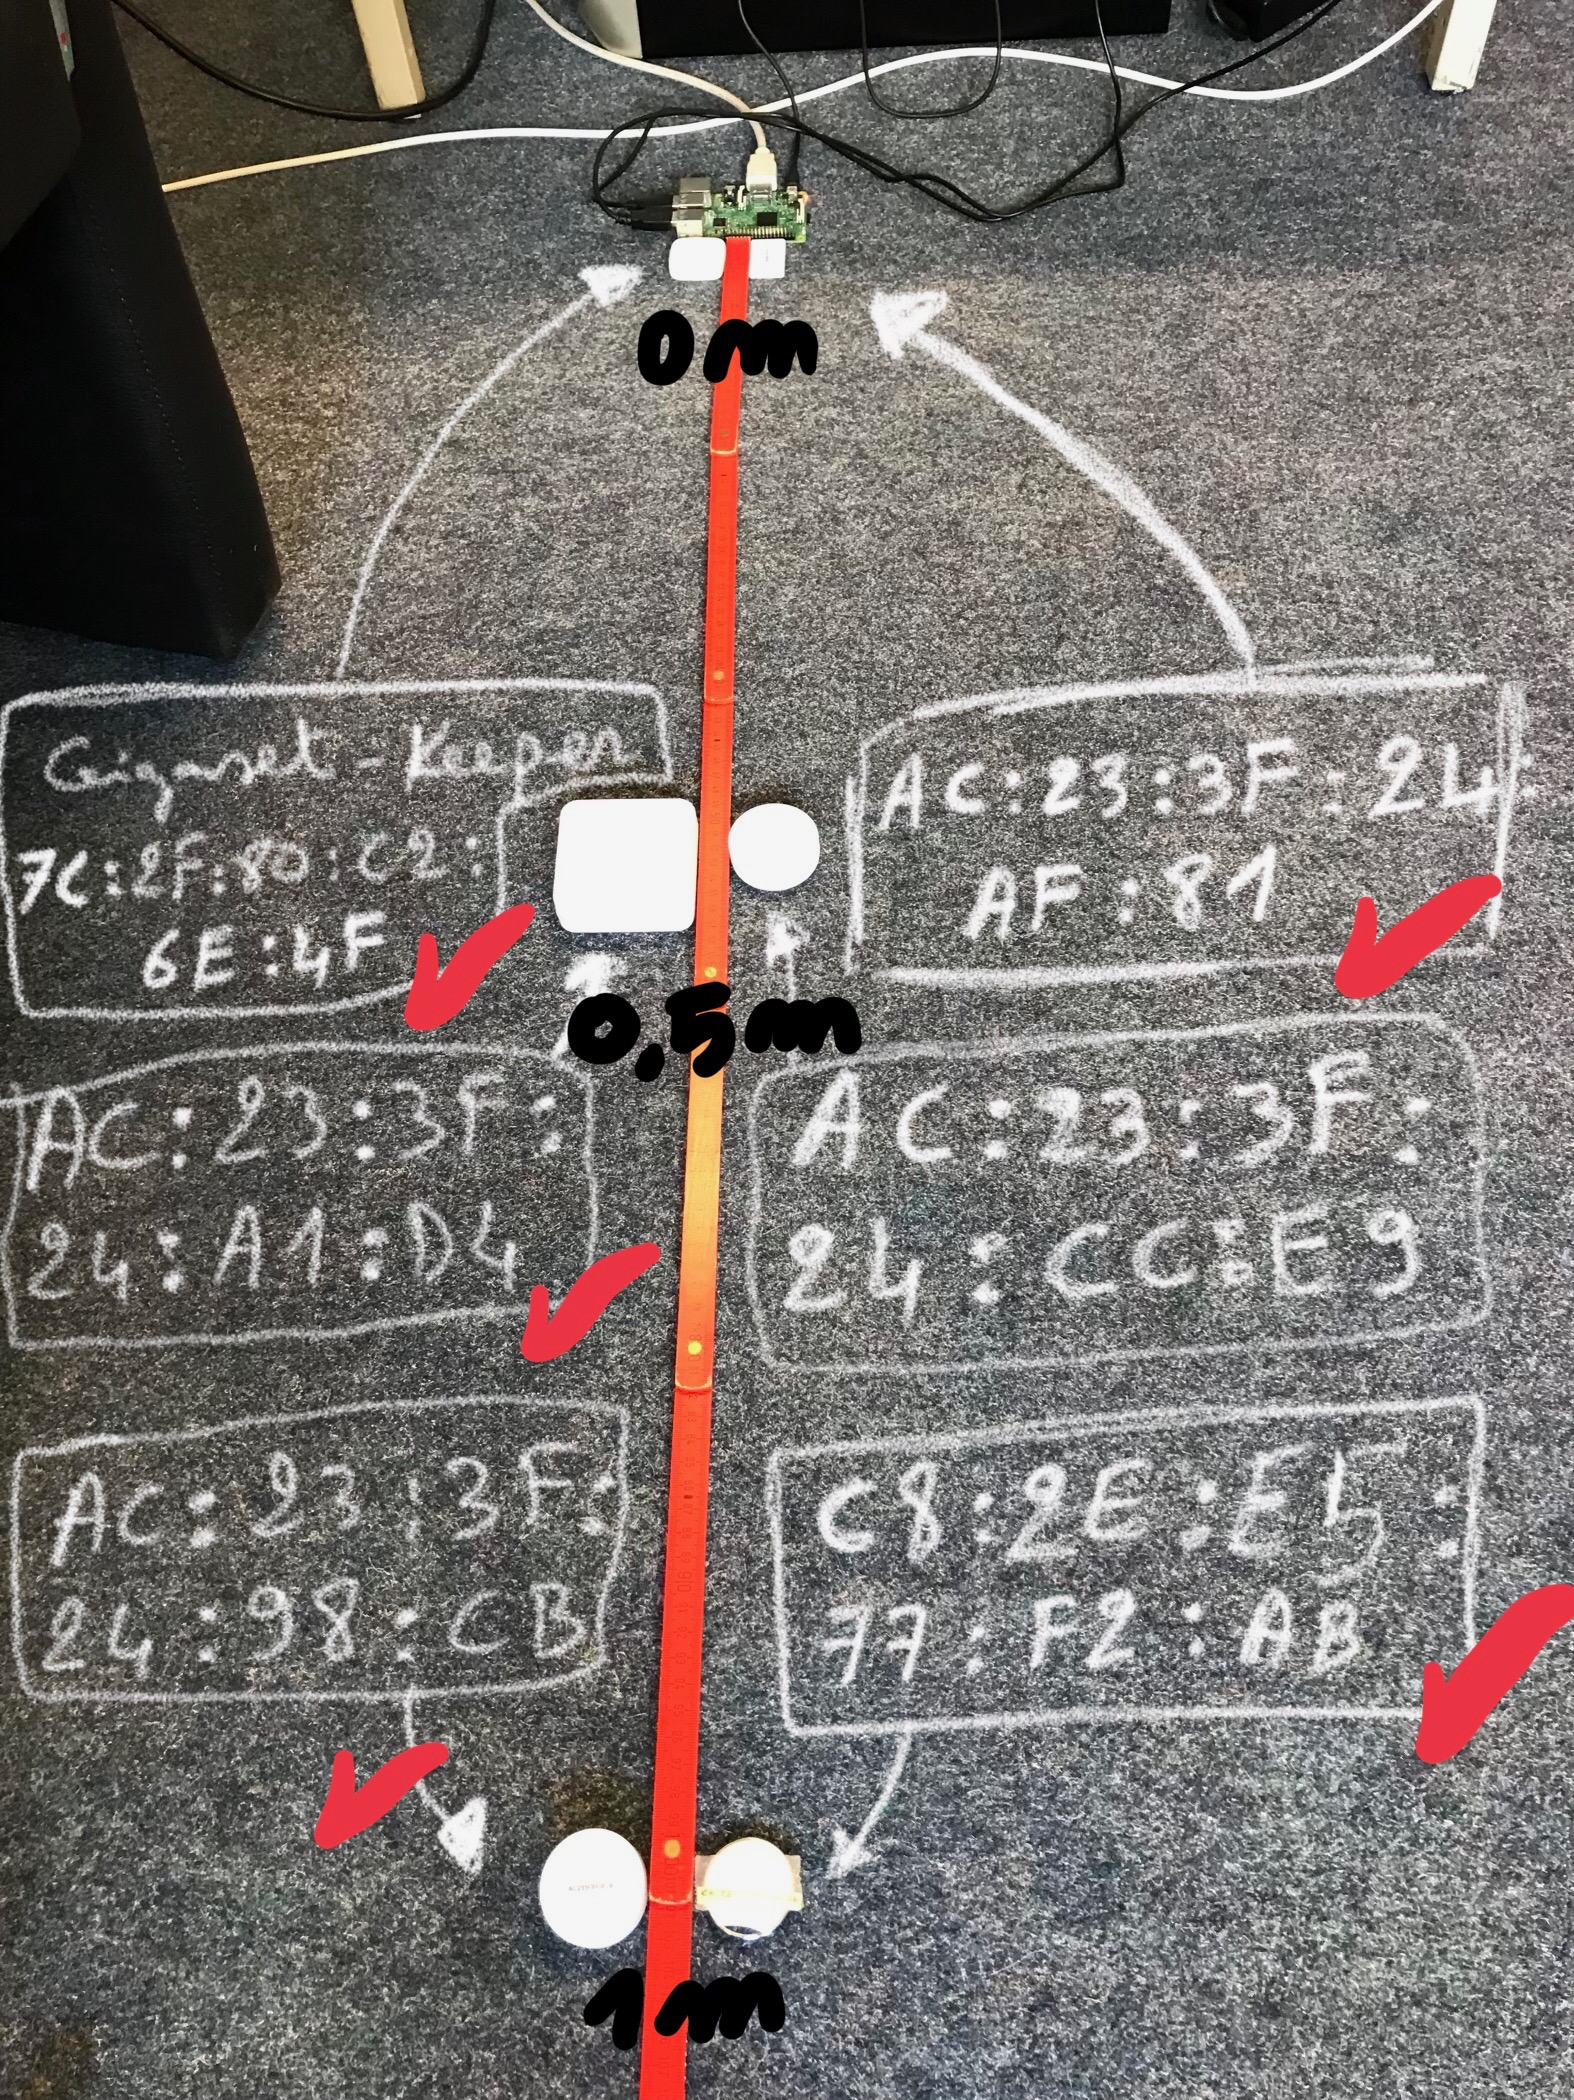 0m
Gigaset-Keeper
7C:2F:80:C2:
6E:4F
AC:23:3F:24:
AF:81
0,5m
AC:23:3F:
24:A1:D4
AC:23:3F:
24:CC:E9
AC:23:3F:
24:98:CB
C8:2E:E5:
77:F2:AB
1m